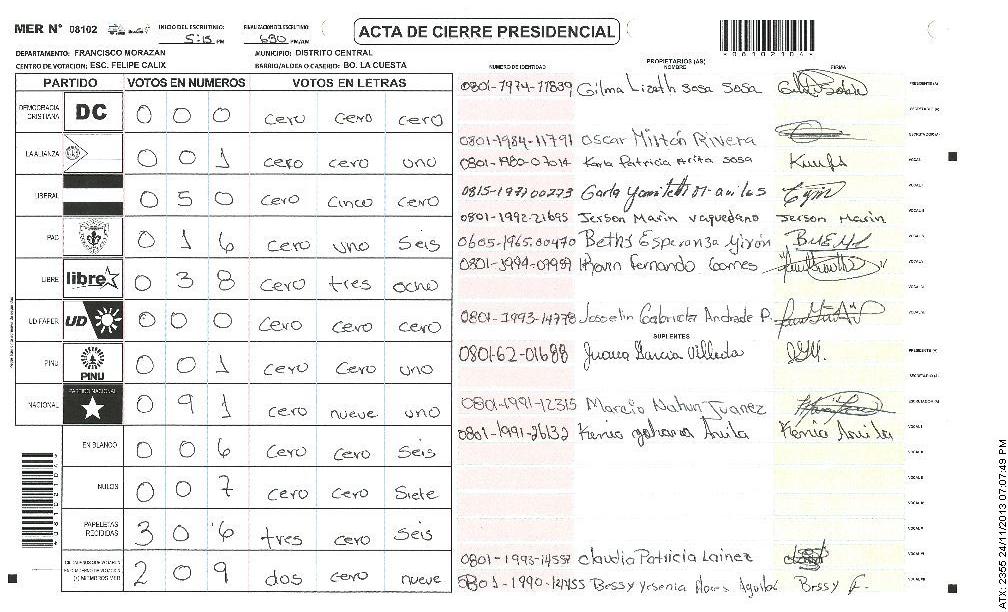 MER N° 08102 INICIO DEL ESCRUTINIO: 5:15 PM FINALIZACION ESCRUTINIO: 630 PM/AM
ACTA DE CIERRE PRESIDENCIAL
DEPARTAMENTO: FRANCISCO MORAZAN MUNICIPIO: DISTRITO CENTRAL
CENTRO DE VOTACION: ESC. FELIPE CALIX BARRIO/ALDEA O CASERIO: BO. LA CUESTA
PARTIDO VOTOS EN NUMEROS VOTOS EN LETRAS
DEMOCRACIA CRISTIANA DC 0 0 0 cero cero cero
LA ALIANZA 0 0 1 cero cero uno
LIBERAL 0 5 0 cero cinco cero
PAC 0 1 6 cero uno Seis
LIBRE libre 0 3 8 cero tres ocho
UD FAPER UD 0 0 0 cero cero cero
PINU PINU 0 0 1 cero cero uno
NACIONAL PARTIDO NACIONAL 0 9 1 cero nueve uno
EN BLANCO 0 0 6 cero cero Seis
NULOS 0 0 7 cero cero Siete
PAPELETAS RECIBIDAS 3 0 6 tres cero seis
2 0 9 dos cero nueve
NUMERO DE IDENTIDAD PROPIETARIOS (AS) NOMBRE FIRMA
Gilma Lizeth Sosa Sosa
0801-1984-11791 Oscar Milton Rivera
Karla Patricia Arita Sosa
0801-1992-21695 Jerson Marin vaquedano Jerson Marin
0605-1965-00470 Bethy Esperanza
Kevin Fernando Gomes
0801-1993-14778 Josselin Gabriela Andrade P.
SUPLENTES
0801-62-01688 Juana Garcia Villeda
0801-1991-12315 Marcio Nahun Juanez
0801-1991-26132 Kenia Avila Kenia Avila
Claudia Patricia Lainez
Bessy Yesenia Flores Aguilar Bessy F.
ATX: 2355 24/11/2013 07:07:49 PM